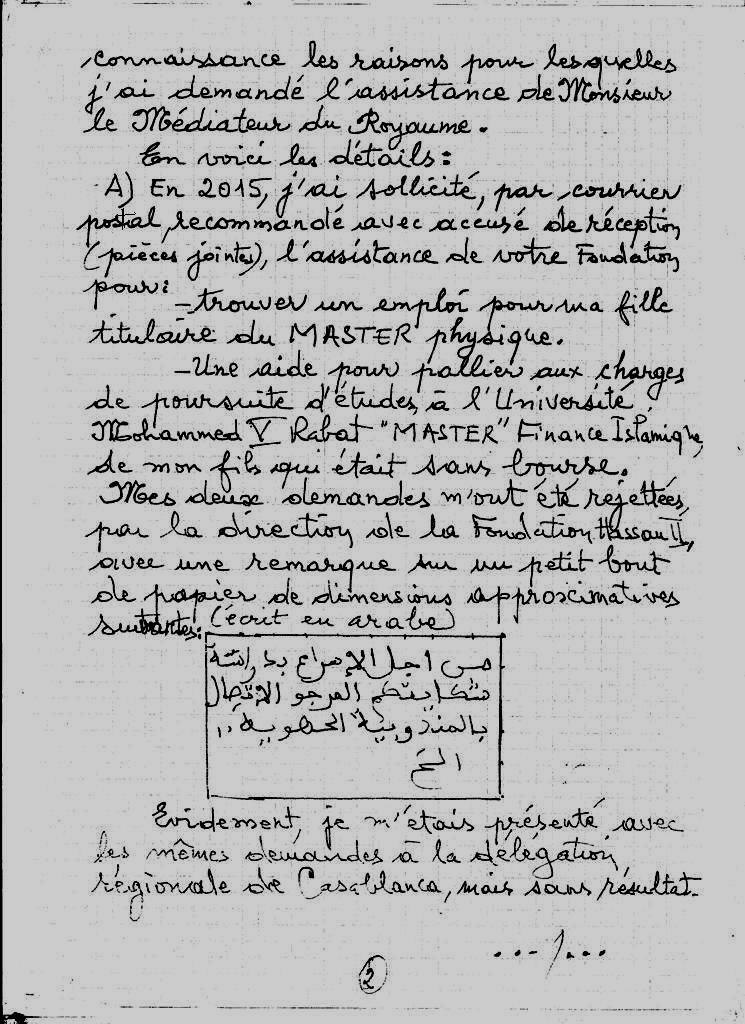 connaissance les raisons pour lesquelles
j'ai demandé l'assistance de Monsieur
le Médiateur du Royaume.
En voici les détails:
A) En 2015, j'ai sollicité, par courrier
postal, recommandé avec accusé de réception
(pièces jointes), l'assistance de votre Fondation
pour:
-trouver un emploi pour ma fille
titulaire du MASTER physique.
-Une aide pour pallier aux charges
de poursuite d'études, à l'Université
Mohammed V Rabat "MASTER" Finance Islamique,
de mon fils qui était sans bourse.
Mes deux demandes m'ont été rejettées,
par la direction de la Fondation Hassan II,
avec une remarque sur un petit bout
de papier de dimensions approximatives
suivantes: (écrit en arabe)
من اجل الإسراع بدراسة
شكايتكم المرجو الإتصال
بالمندوبية الجهوية،،
الخ
Evidement, je m'étais présenté avec
les mêmes demandes à la délégation
régionale de Casablanca, mais sans résultat.
.../...
2